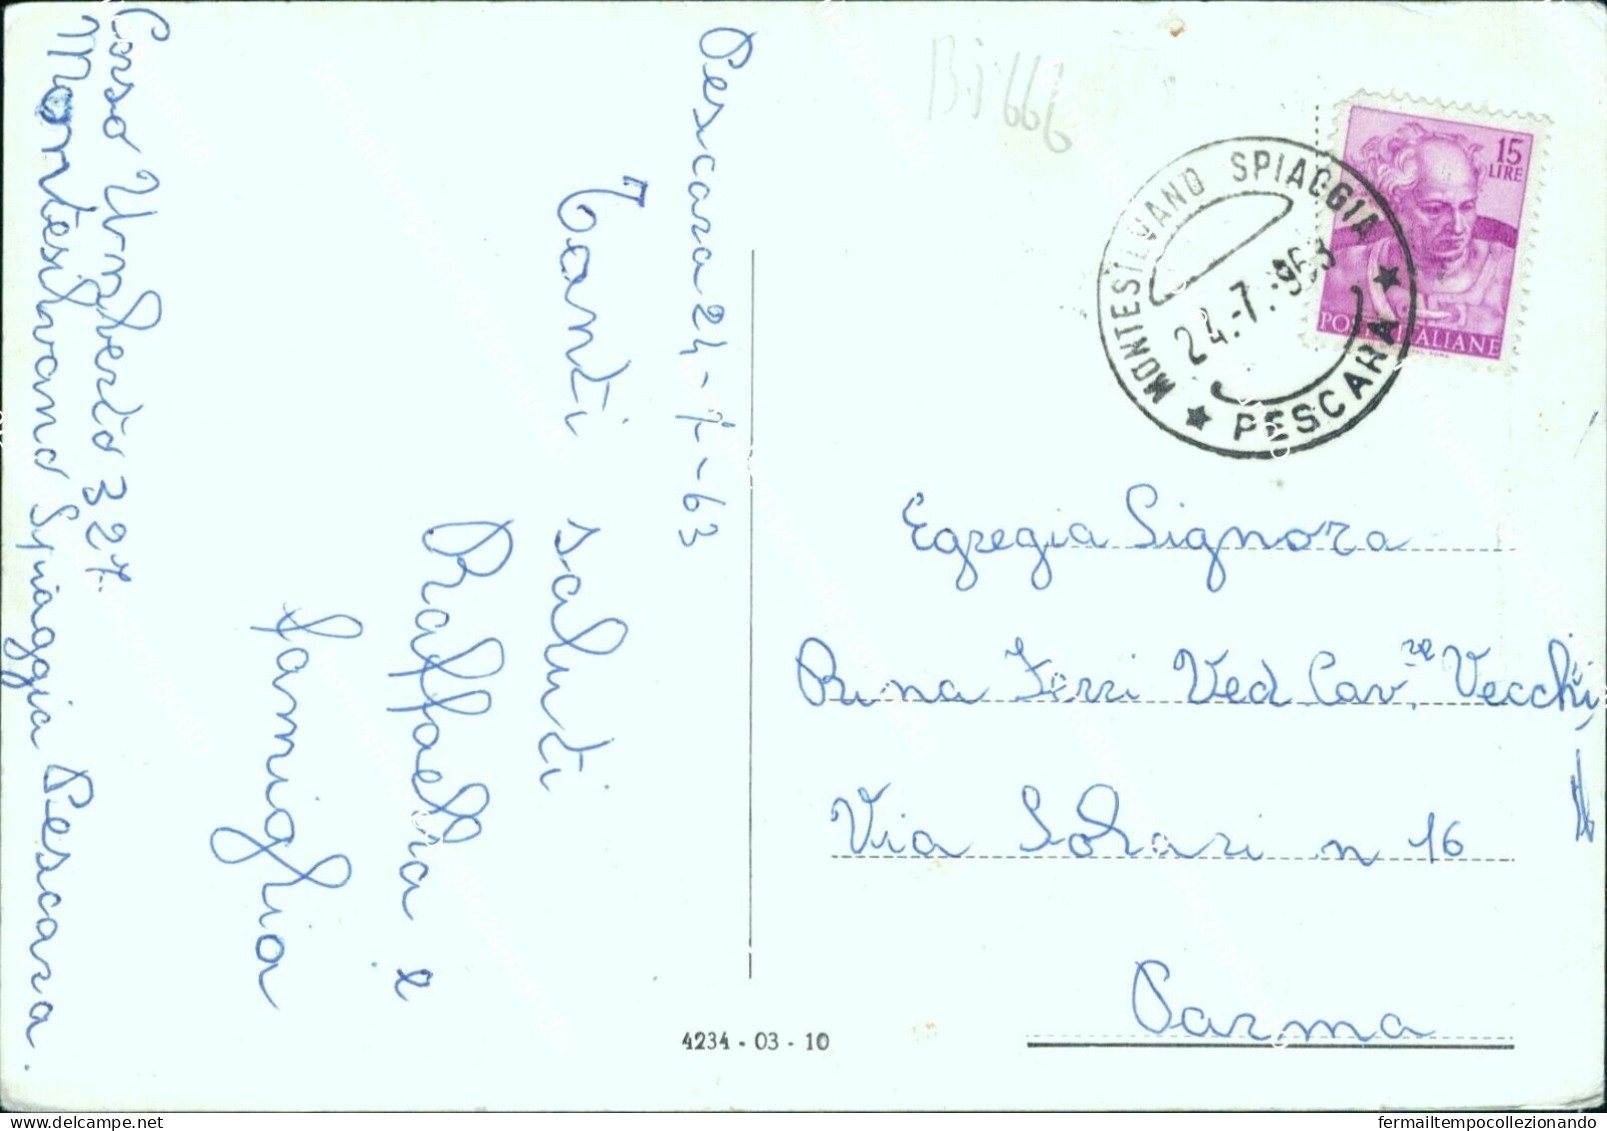 Corso Umberto 327
Montesilvano Spiaggia Pescara.
Pescara 24-7-63
Tanti saluti
Raffaella e
famiglia
Bj 666
15
LIRE
POSTE ITALIANE
MONTESILVANO SPIAGGIA
24.-7.-963
★ PESCARA ★
Egregia Signora
Rina Ferri Ved Cav.re Vecchi
Via Solari n 16
Parma
4234 - 03 - 10
fermailtempocollezionando